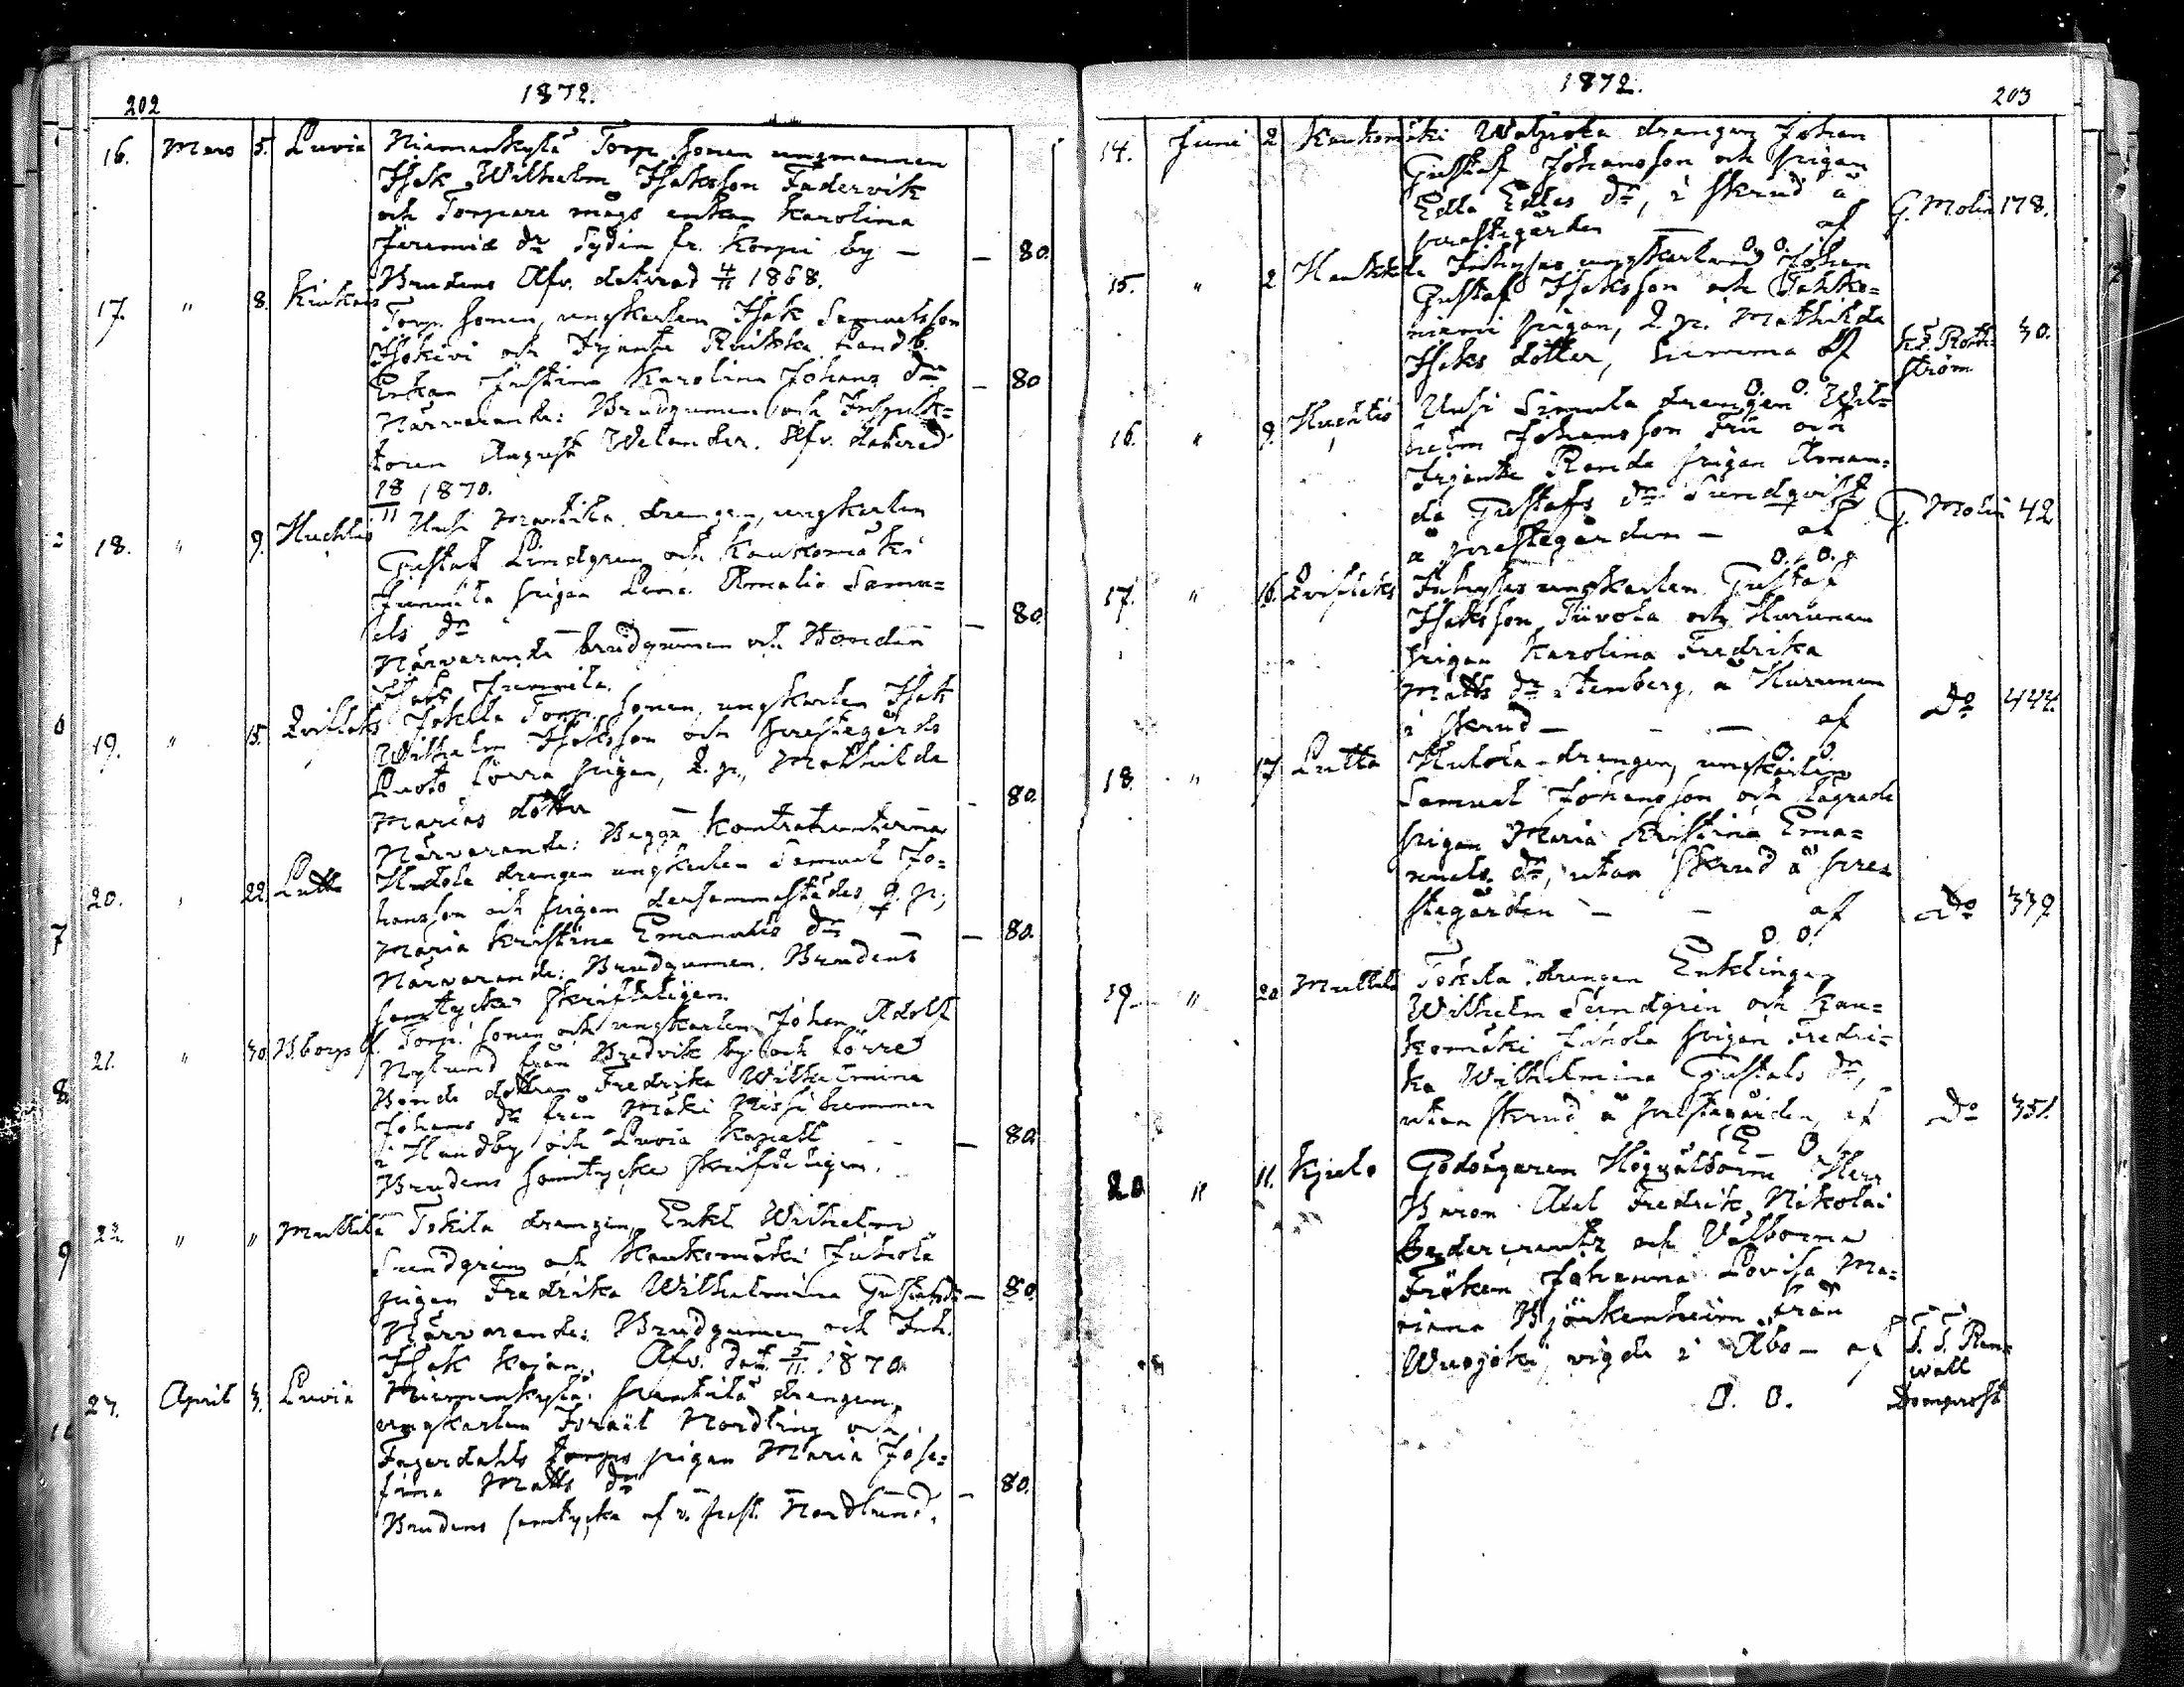 202
1872.
16. Mars 5. Luvia Niemenkylä Torp. sonen ungmannen
Isak Wilhelm Isaksson Fadervik
och Torpare mågs enkan Karolina
Jeremiæ dr Sydin fr. Korpi by — — 80.
Brudens Afv. daterad 4/11 1868.
17. " 8. Kiukais Torp. sonen, ungkarlen Isak Samuelsson
Isokivi och Irjante bandb.
Enkan Justina Karolina Johans dr — 80
Närvarande: Brudgumen och Inspek=
toren August Welander. Afv. daterad
18/11 1870.
18. " 9. Huchtis Uusi Marttila drengen, ungkarlen
Gustaf Lindgren och Kaukomäki
Junnila pigan Lena Amalia Samu=
els dr — 80.
Närvarande brudgumen och Bonden
Isak Junnila.
19. " 15. Qvisteks Jokela Torp. sonen, ungkarlen Isak
Wilhelm Isaksson och prestegårds
Luoto lörra pigan, Q. p., Mathilda
Marias dotter — — 80.
Närvarande: Begge Kontrahenterna
20. " 22. Lutta Hulola drengen ungkarlen Samuel Jo=
hansson och pigan dersammastädes, Q. p.,
Maria Kristina Emanuels dr — 80.
Närvarande: Brudgumen. Brudens
samtycke skrifteligen.
21. " 30. B.borgs Torp. sonen och ungkarlen Johan Adolf
Nylund från Bredvik by och lörre
Bonde dottren Fredrika Wilhelmina
Johans dr från Mäki
i Hundby och Luvia Kapell — 80.
Brudens samtycke skrifteligen.
22. " " Mullila Tokila drengen, Enkl. Wilhelm
Sundgren och Kaukomäki Juhola
pigan Fredrika Wilhelmina Gustafs dr — 80.
Närvarande: Brudgumen och Inh.
Isak Kojan. Afv. dat. 5/11 1870
23. April 3. Luvia Niemenkylä drengen,
ungkarlen Israël Nordling och
Fagerdahls torps pigan Maria Jose=
fina Matts dr — 80.
Brudens samtycke af v. past. Nordlund.
1872.
203
14. Juni 2 Kaukomäki drengen Johan
Gustaf Johansson och pigan
Edla Edlas dr, i skrud å
prestegården — af G. Molin 178.
O. O.
15. " 2 Inhyses ungkarlen Johan
Gustaf Isaksson och Tahko=
niemi pigan, Q. p. Mathilda
Isaks dotter, hemma af K. F. Roth=
ström 30.
O. O.
16. " 9. Huchtis Uusi Simula drengen Wil=
helm Johansson Frii och
Irjante Ronda pigan Aman=
da Gustafs dr Sundqvist
å prestegården — af G. Molin 42
O. O.
17. " 16. Qvisteks Inhyses ungkarlen Gustaf
Isaksson Tiivola och Hurunen
pigan Karolina Fredrika
Matts dr Stenberg, å Hurunen
i skrud — — af Do 444.
O. O.
18. " 17 Lutta Hulola drengen, ungkarlen
Samuel Johansson och lägrade
pigan Maria Kristina Ema=
nuels dr, utan skrud å pres
tegården — — af Do 339
O. O.
19. " 20 Mullila Tokila drengen Enklingen
Wilhelm Sundgren och Kau=
komäki Juhola pigan Fredri=
ka Wilhelmina Gustafs dr,
utan skrud å prestegården, af Do 351.
E O
20 " 11. Kjulo Godsägaren Högvälborne Herr
Baron Axel Fredrik Nikolai
Cedercreutz och Välborna
Fröken Johanna Lovisa Ma=
rianna Björkenheim från
Wuojoki, vigde i Åbo — af T. T. Ren=
vall
Domprost
O. O.